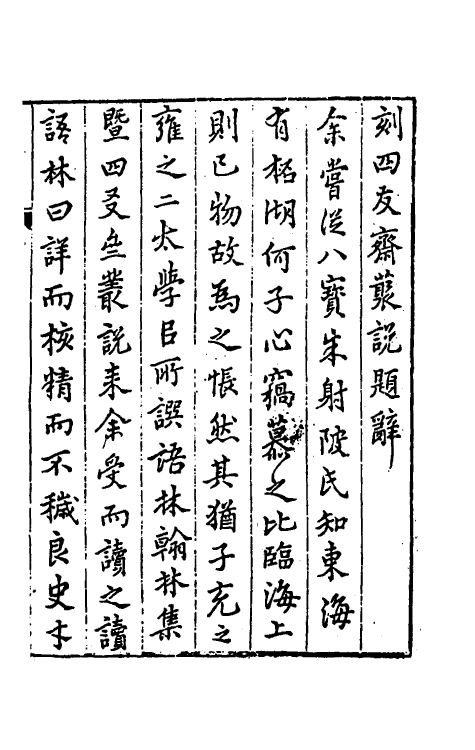 刻四友齋叢說題辭
余嘗從八寶朱射陂氏知東海
有柘湖何子心竊慕之比臨海上
則已物故為之悵然其猶子充之
雍之二太學㠯所譔語林翰林集
暨四友齋叢說來余受而讀之讀
語林曰詳而核精而不穢良史才